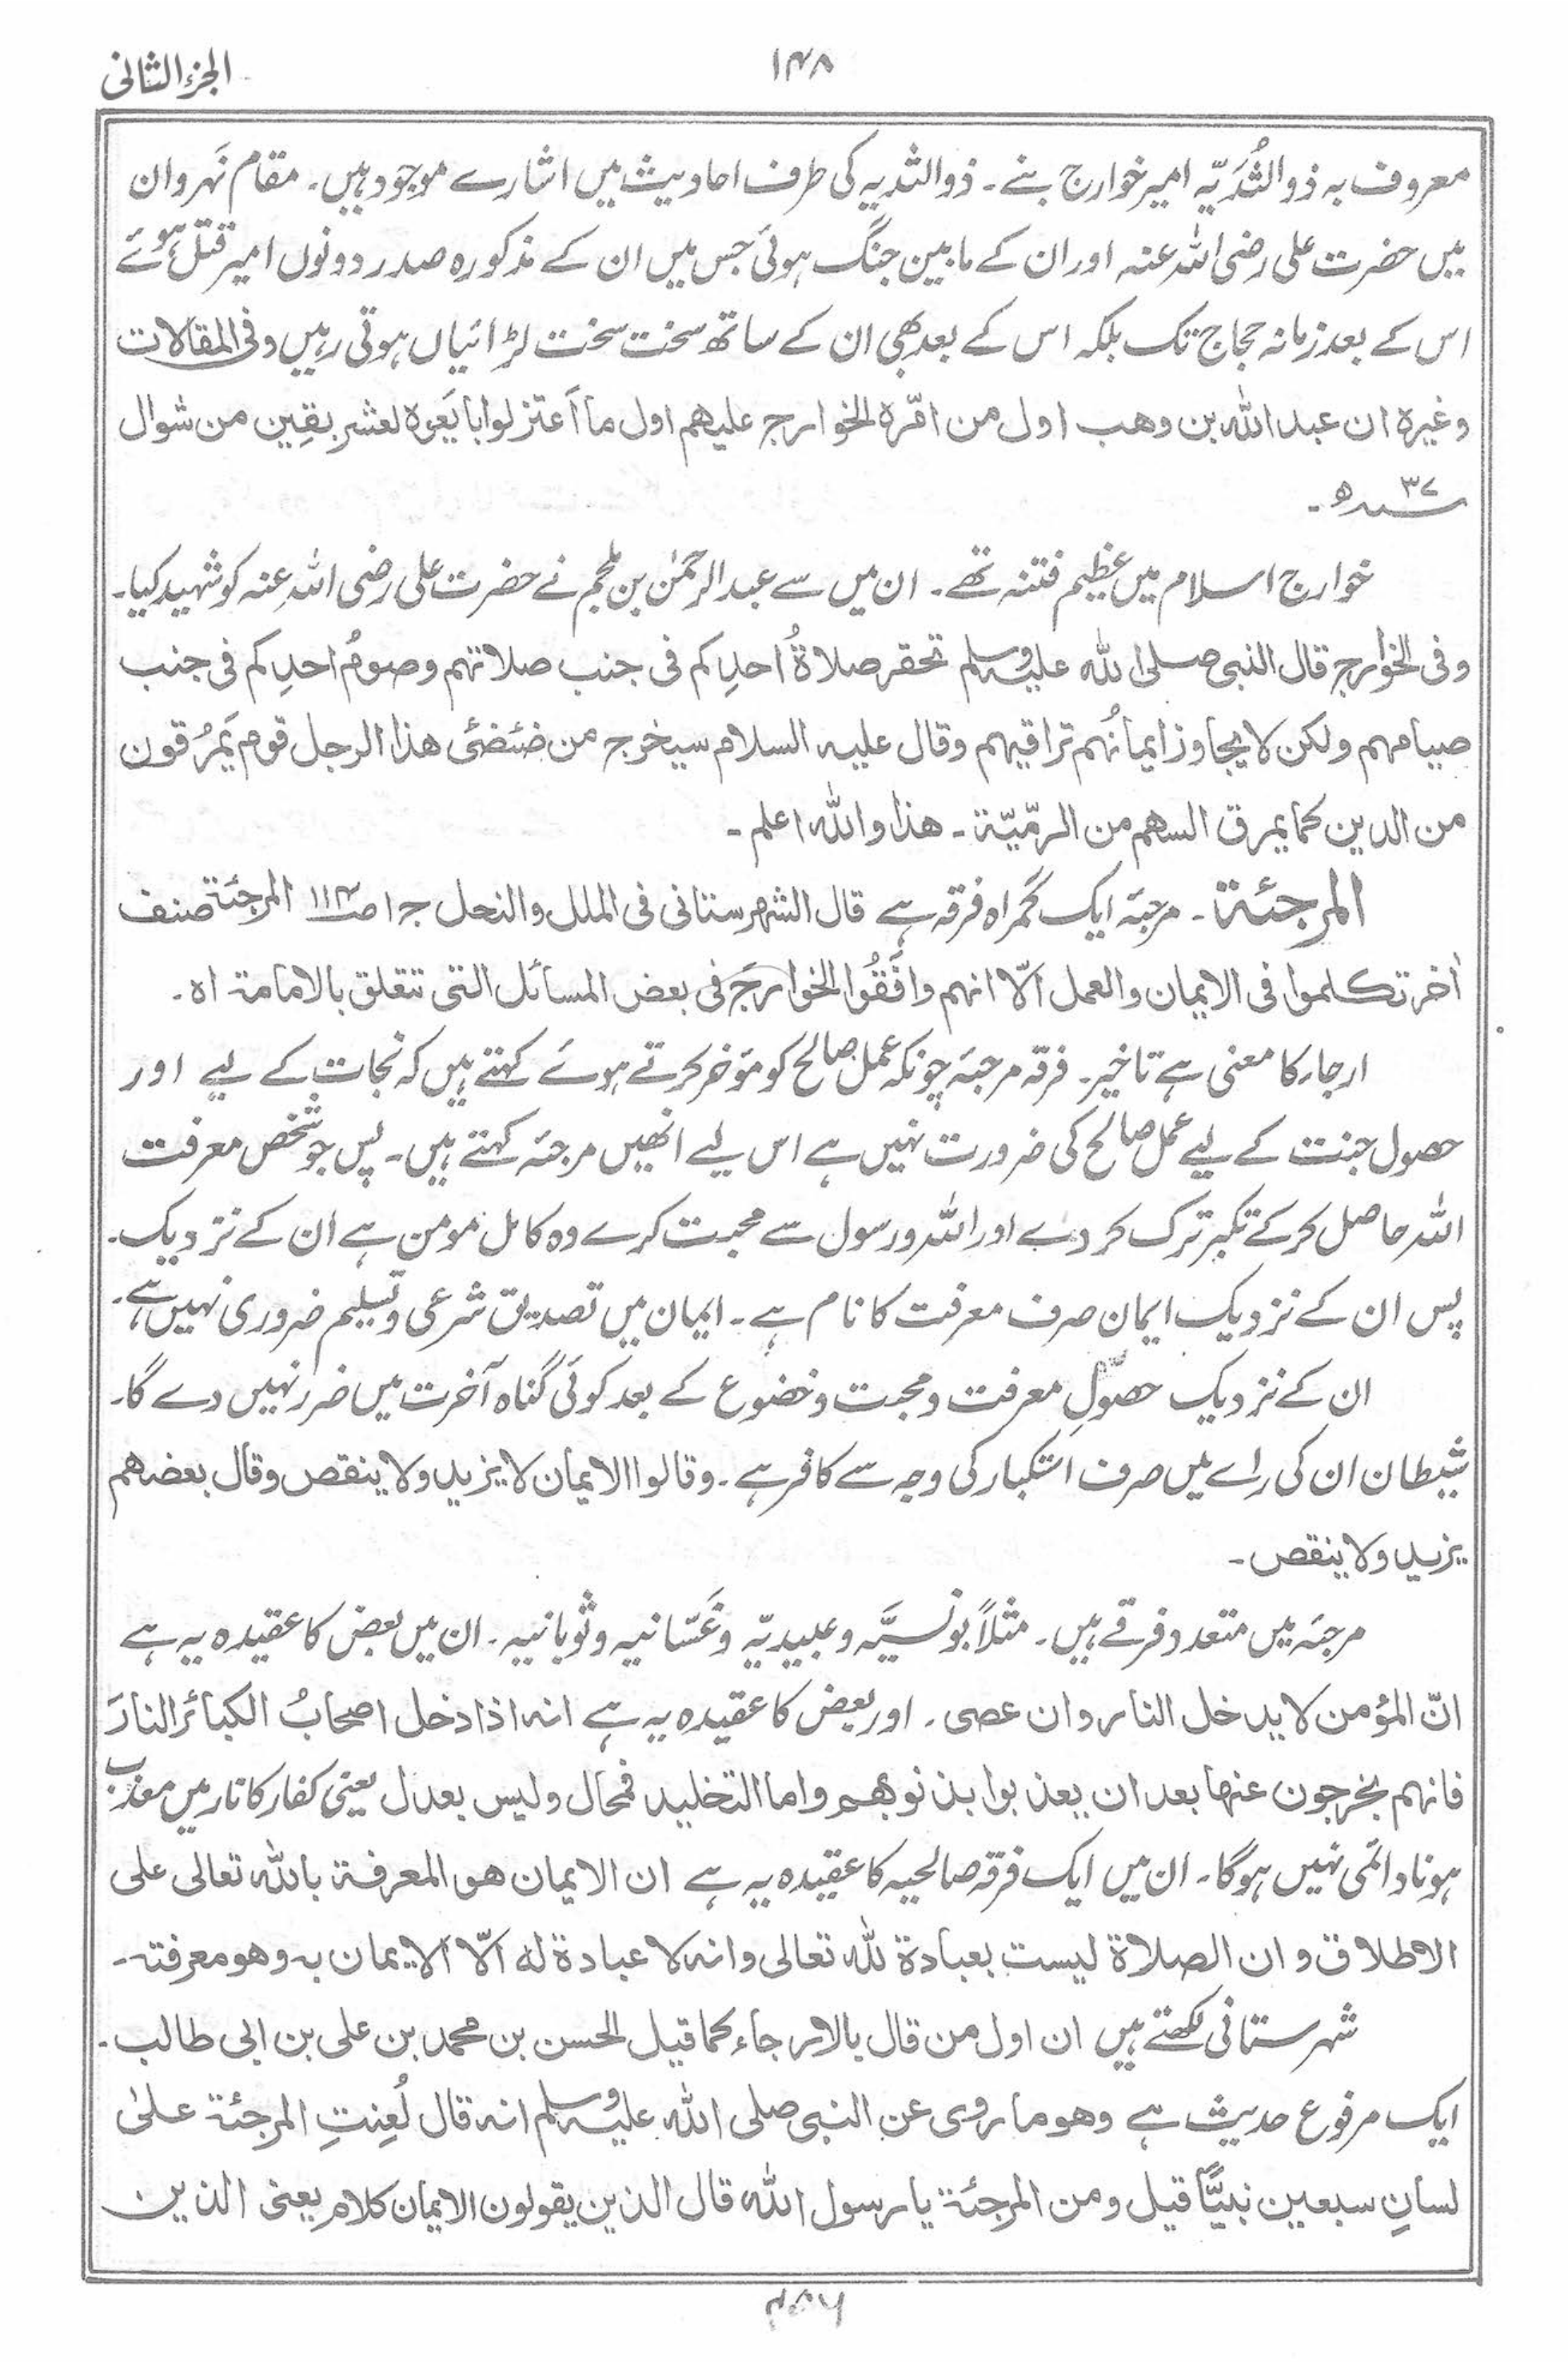 الجزء الثانی
۱۴۸
معروف بہ ذو الثُّدَیّہ امیر خوارج بنے۔ ذو الثدیہ کی طرف احادیث میں اشارے موجود ہیں۔ مقام نَہروان
میں حضرت علی رضی اللہ عنہ اور ان کے مابین جنگ ہوئی جس میں ان کے مذکورہ صدر دونوں امیر قتل ہوئے
اس کے بعد زمانہ حجاج تک بلکہ اس کے بعد بھی ان کے ساتھ سخت سخت لڑائیاں ہوتی رہیں وفی المقالات
وغیرہ ان عبد اللہ بن وھب اول من امّرہ الخوارج علیھم اول ما اَعتزلوا بایَعوہ لعشر بقِین من شوال
۳۷ سنہ ھ۔
خوارج اسلام میں عظیم فتنہ تھے۔ ان میں سے عبد الرحمٰن بن ملجم نے حضرت علی رضی اللہ عنہ کو شہید کیا۔
وفی الخوارج قال النبی صلی اللہ علیہ وسلم تحقر صلاۃُ احدِکم فی جنب صلاتہم وصومُ احدِکم فی جنب
صیامہم ولکن لا یجاوز ایمانُہم تراقیہم وقال علیہ السلام سیخرج من ضئضئی ھذا الرجل قوم یَمرُقون
من الدین کما یمرق السھم من الرمّیّۃ۔ ھذا واللہ اعلم۔
المرجئۃ۔ مرجئہ ایک گمراہ فرقہ ہے قال الشھرستانی فی الملل والنحل جـ ۱ صـ ۱۱۴ المرجئۃ صنف
اٰخر تکلموا فی الایمان والعمل الّا انہم وافَقُوا الخوارجَ فی بعض المسائل التی تتعلق بالامامۃ اہ۔
ارجاء کا معنی ہے تاخیر۔ فرقہ مرجئہ چونکہ عمل صالح کو مؤخر کرتے ہوئے کہتے ہیں کہ نجات کے لیے اور
حصول جنت کے لیے عمل صالح کی ضرورت نہیں ہے اس لیے انھیں مرجئہ کہتے ہیں۔ پس جو شخص معرفت
اللہ حاصل کر کے تکبر ترک کر دے اور اللہ ورسول سے محبت کرے وہ کامل مومن ہے ان کے نزدیک۔
پس ان کے نزدیک ایمان صرف معرفت کا نام ہے۔ ایمان میں تصدیق شرعی وتسلیم ضروری نہیں ہے۔
ان کے نزدیک حصولِ معرفت ومحبت وخضوع کے بعد کوئی گناہ آخرت میں ضرر نہیں دے گا۔
شیطان ان کی رائے میں صرف استکبار کی وجہ سے کافر ہے۔ وقالوا الایمان لا یزید ولا ینقص وقال بعضھم
یزید ولا ینقص۔
مرجئہ میں متعدد فرقے ہیں۔ مثلاً یونسیَّہ وعبیدیّہ وغَسّانیہ وثوبانیہ۔ ان میں بعض کا عقیدہ یہ ہے
انّ المؤمن لا یدخل النار وان عصی۔ اور بعض کا عقیدہ یہ ہے انہ اذا دخل اصحابُ الکبائر النارَ
فانہم یخرجون عنھا بعد ان یعذبوا بذنوبھم واما التخلید فمحال ولیس بعدل یعنی کفار کا نار میں معذب
ہونا دائمی نہیں ہوگا۔ ان میں ایک فرقہ صالحیہ کا عقیدہ یہ ہے ان الایمان ھو المعرفۃ باللہ تعالی علی
الاطلاق وان الصلاۃ لیست بعبادۃ للہ تعالی وانہ لا عبادۃ لہ الّا الایمان بہ وھو معرفتہ۔
شہرستانی لکھتے ہیں ان اول من قال بالارجاء کما قیل الحسن بن محمد بن علی بن ابی طالب۔
ایک مرفوع حدیث ہے وھو ما روی عن النبی صلی اللہ علیہ وسلم انہ قال لُعِنتِ المرجئۃ علیٰ
لسانِ سبعین نبیًّا قیل ومن المرجئۃ یا رسول اللہ قال الذین یقولون الایمان کلام یعنی الذین